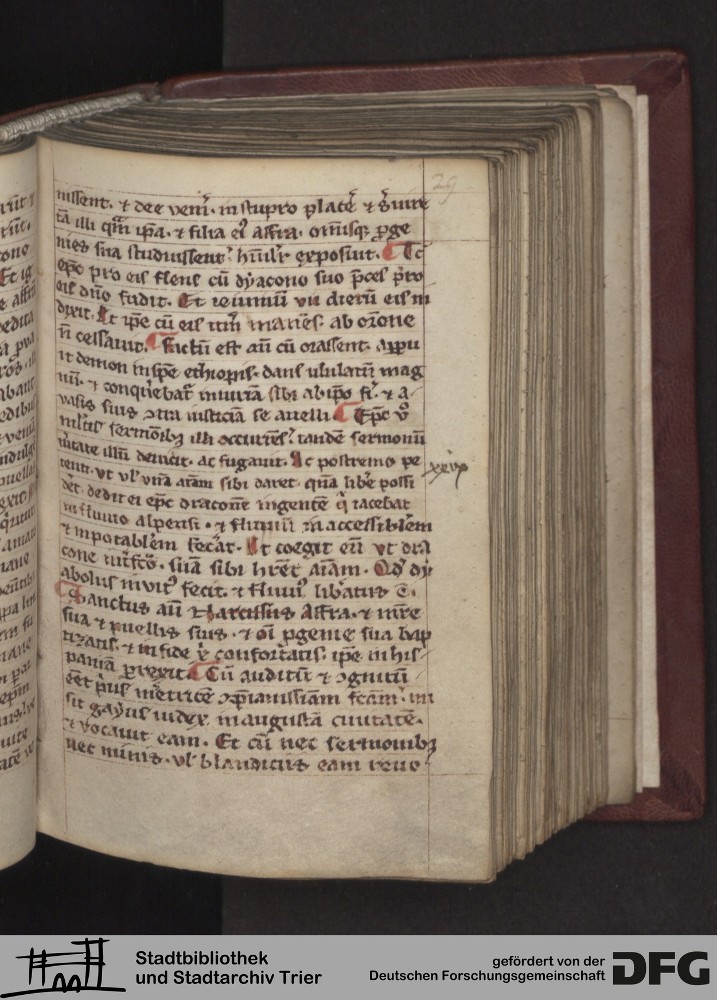 29
nissent. ⁊ dee vener̃. in stupro placẽt ⁊ ẜuire
tã illi qm̃ ip̃a. ⁊ filia ei⁹ affra. om̃isq; ꝓge
nies sua studuissent. hũilr̃ exposiut. ¶ Tc̃
ep̃c pro eis flens cũ dyacono suo p̃ces p̃ro
eis dño fudit. Et ieiuniũ vii dierũ eis in
dixit. Et ip̃e cũ eis itm̃ manẽs. ab or̃one
ñ cessauit. ¶ Factũ est aũ cũ orassent. appu
it demon in sp̃e ethiopis. dans ululatũ mag
nũ. ⁊ conq̃rebat̃ iniuriã sibi ab ip̃o fi'. ⁊ a
vasis suis ↄtra iusticiã se auelli. ¶ Ep̃c v̾
ml̃tis sermõib; illi occurrẽs. tandẽ sermonũ
ṽitate illũ deuicit. ac fugauit. Ac postremo pe
tenti. vt vl̾ vnã aĩam sibi daret. quã lib̾e possi
det. dedit ei ep̃c draconẽ ingentẽ q̃ iacebat
in fluuio alpensi. ⁊ fluuiũ inaccessibilem
⁊ inpotablẽm fec̾at. Et coegit eũ vt dra
cone int̾fc̃o. suã sibi hr̃et aĩam. Qd̾ dy
abolus inuit⁹ fecit. ⁊ fluui⁹ lib̾atus ẽ.
¶ Sanctus aũ Narcissus Affra. ⁊ mr̃e
sua ⁊ puellis suis. ⁊ oĩ ꝓgenie sua bap
tizatis. ⁊ in fide x̃ confortatis. ip̃e in his
paniã ꝑrexit. ¶ Cũ auditũ ⁊ ↄgnitũ
eẽt p̾us meretricẽ xp̃ianissiãm fc̃am. mi
sit gayus iudex in augustã ciuitatẽ.
⁊ vocauit eam. Et cũ nec sermonib;
nec minis. vl̾ blandiciis eam reuo
Stadtbibliothek
und Stadtarchiv Trier
gefördert von der
Deutschen Forschungsgemeinschaft
DFG